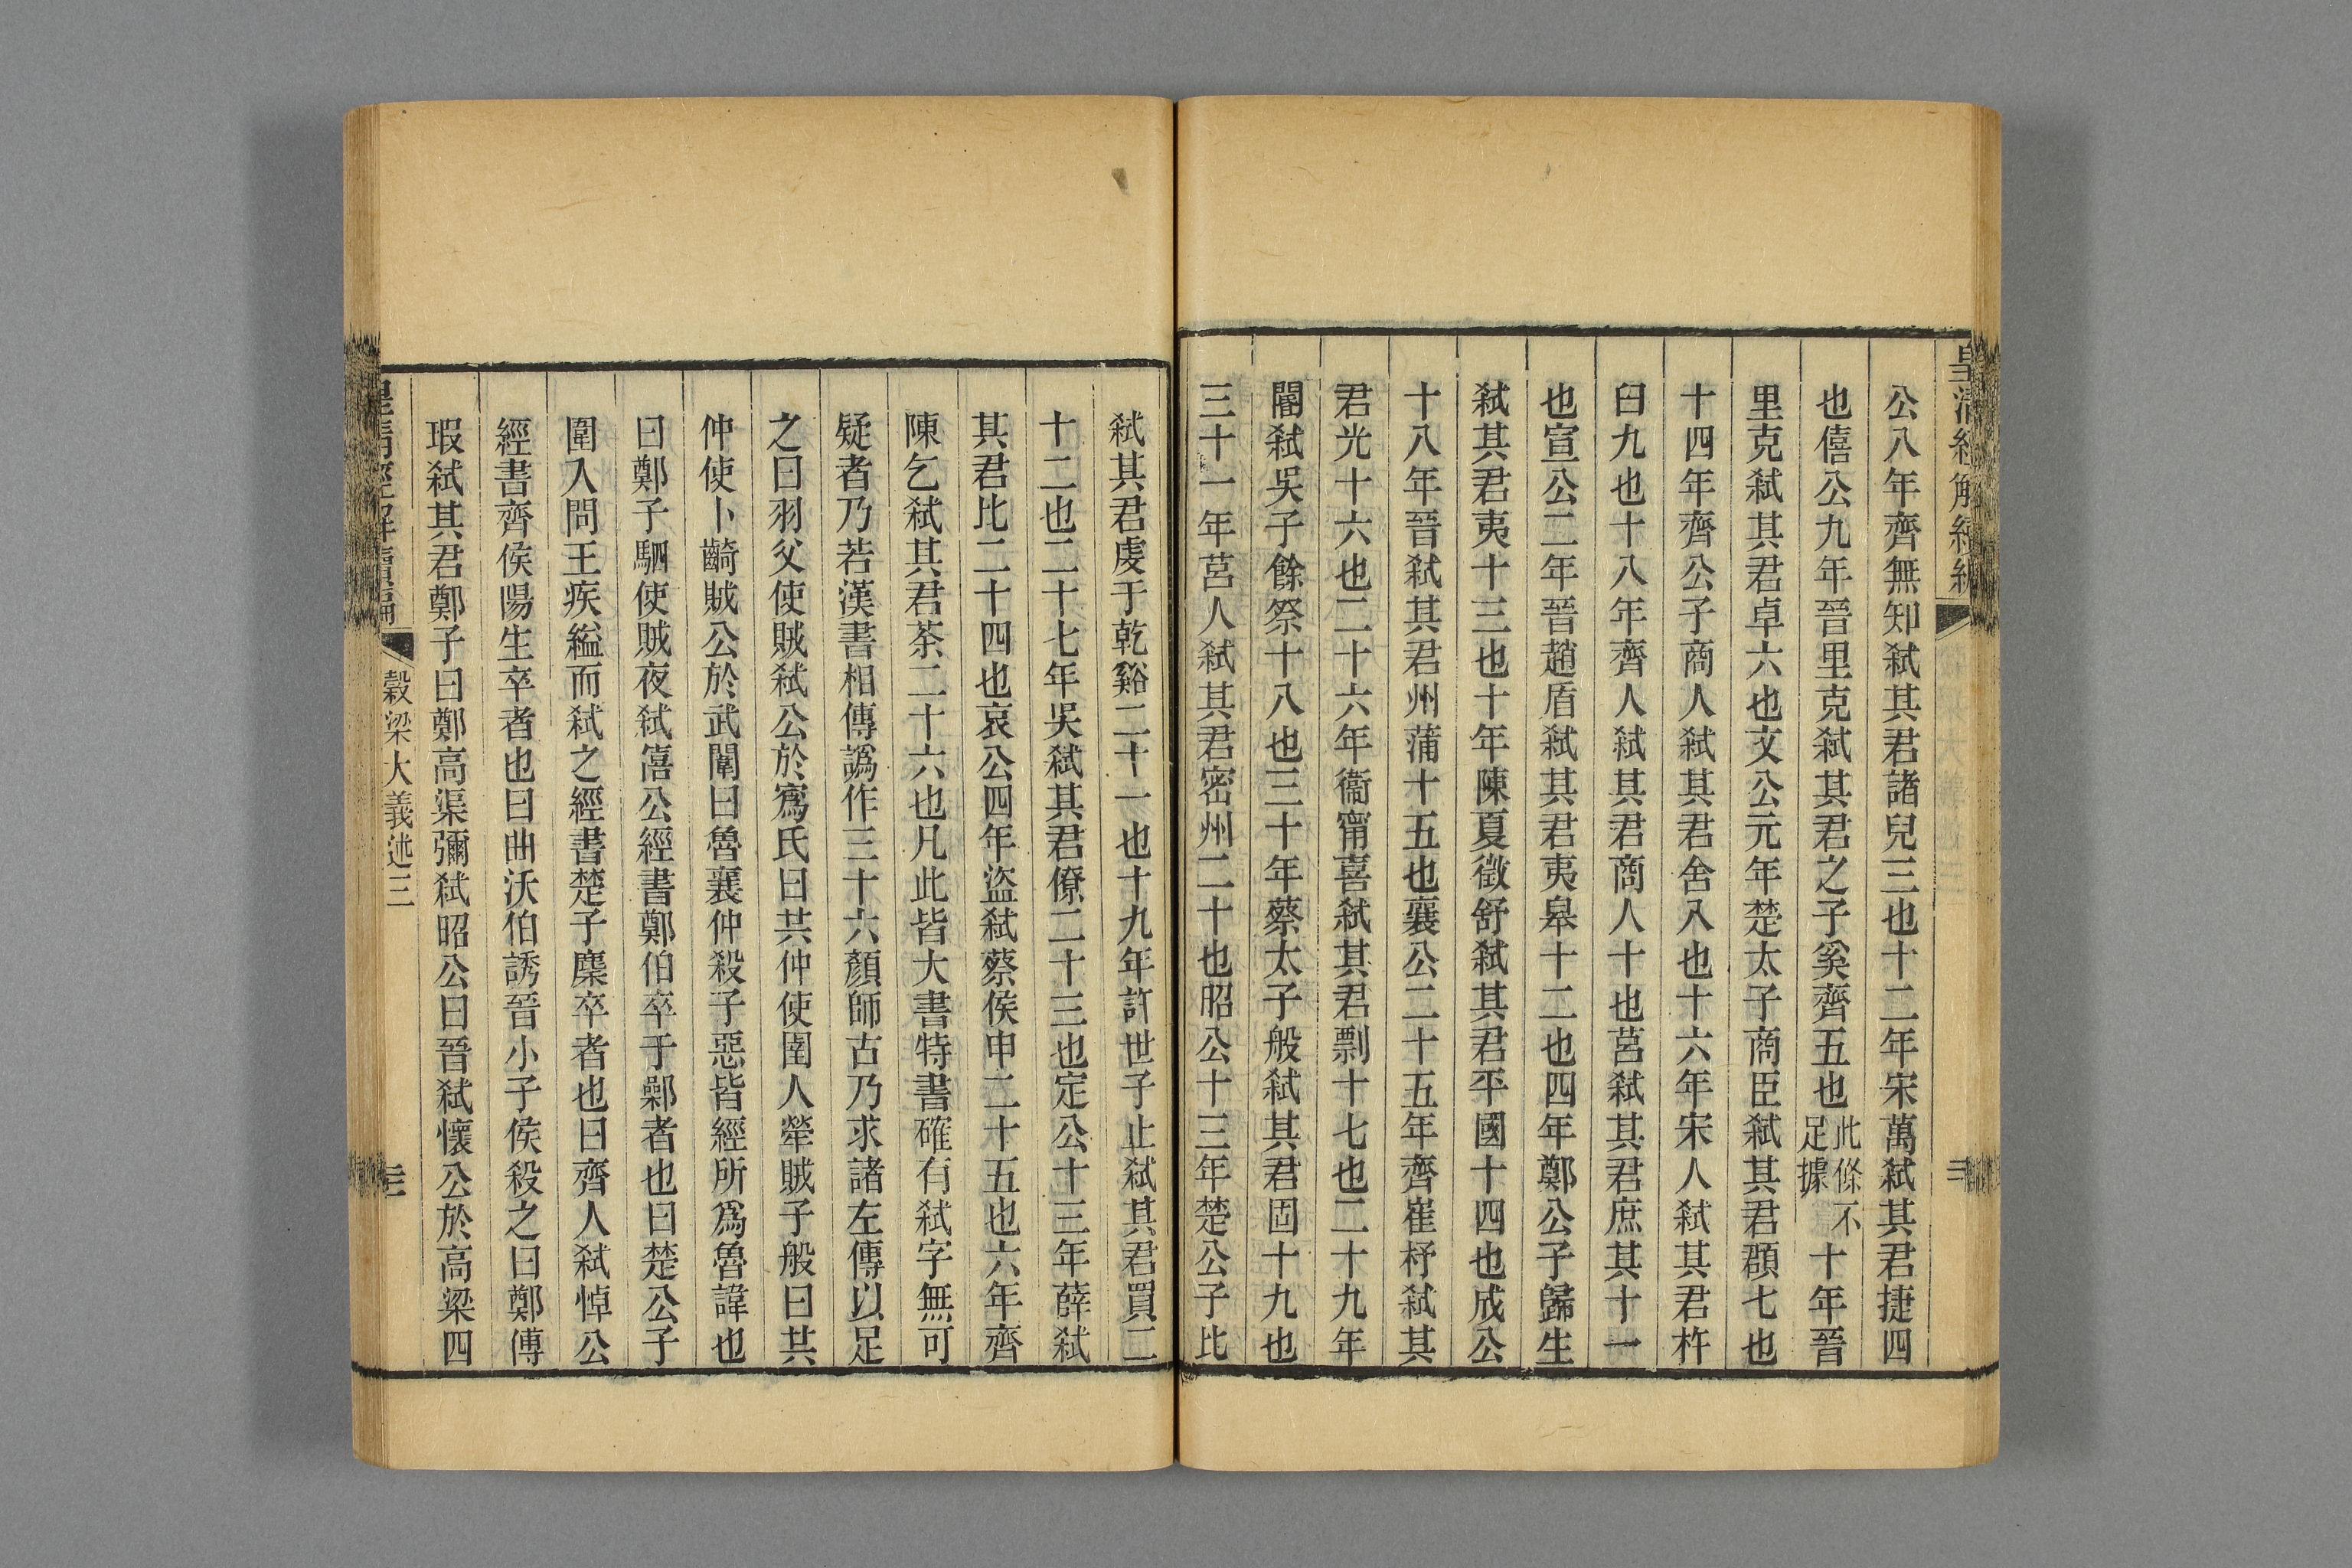 皇清經解續編
公八年齊無知弒其君諸兒三也十二年宋萬弒其君捷四
也僖公九年晉里克弒其君之子奚齊五也此條不足據十年晉
里克弒其君卓六也文公元年楚太子商臣弒其君頵七也
十四年齊公子商人弒其君舍入也十六年宋人弒其君杵
臼九也十八年齊人弒其君商人十也莒弒其君庶其十一
也宣公二年晉趙盾弒其君夷皋十二也四年鄭公子歸生
弒其君夷十三也十年陳夏徵舒弒其君平國十四也成公
十八年晉弒其君州蒲十五也襄公二十五年齊崔杼弒其
君光十六也二十六年衞甯喜弒其君剽十七也二十九年
閽弒吳子餘祭十八也三十年蔡太子般弒其君固十九也
三十一年莒人弒其君密州二十也昭公十三年楚公子比
弒其君虔于乾谿二十一也十九年許世子止弒其君買二
十二也二十七年吳弒其君僚二十三也定公十三年薛弒
其君比二十四也哀公四年盜弒蔡侯申二十五也六年齊
陳乞弒其君荼二十六也凡此皆大書特書確有弒字無可
疑者乃若漢書相傳譌作三十六顏師古乃求諸左傳以足
之曰羽父使賊弒公於寪氏曰共仲使圉人犖賊子般曰共
仲使卜齮賊公於武闈曰魯襄仲殺子惡皆經所爲魯諱也
曰鄭子駟使賊夜弒僖公經書鄭伯卒于鄵者也曰楚公子
圍入問王疾縊而弒之經書楚子麇卒者也曰齊人弒悼公
經書齊侯陽生卒者也曰曲沃伯誘晉小子侯殺之曰鄭傅
瑕弒其君鄭子曰鄭高渠彌弒昭公曰晉弒懷公於高梁四
皇清經解續編
穀梁大義述三